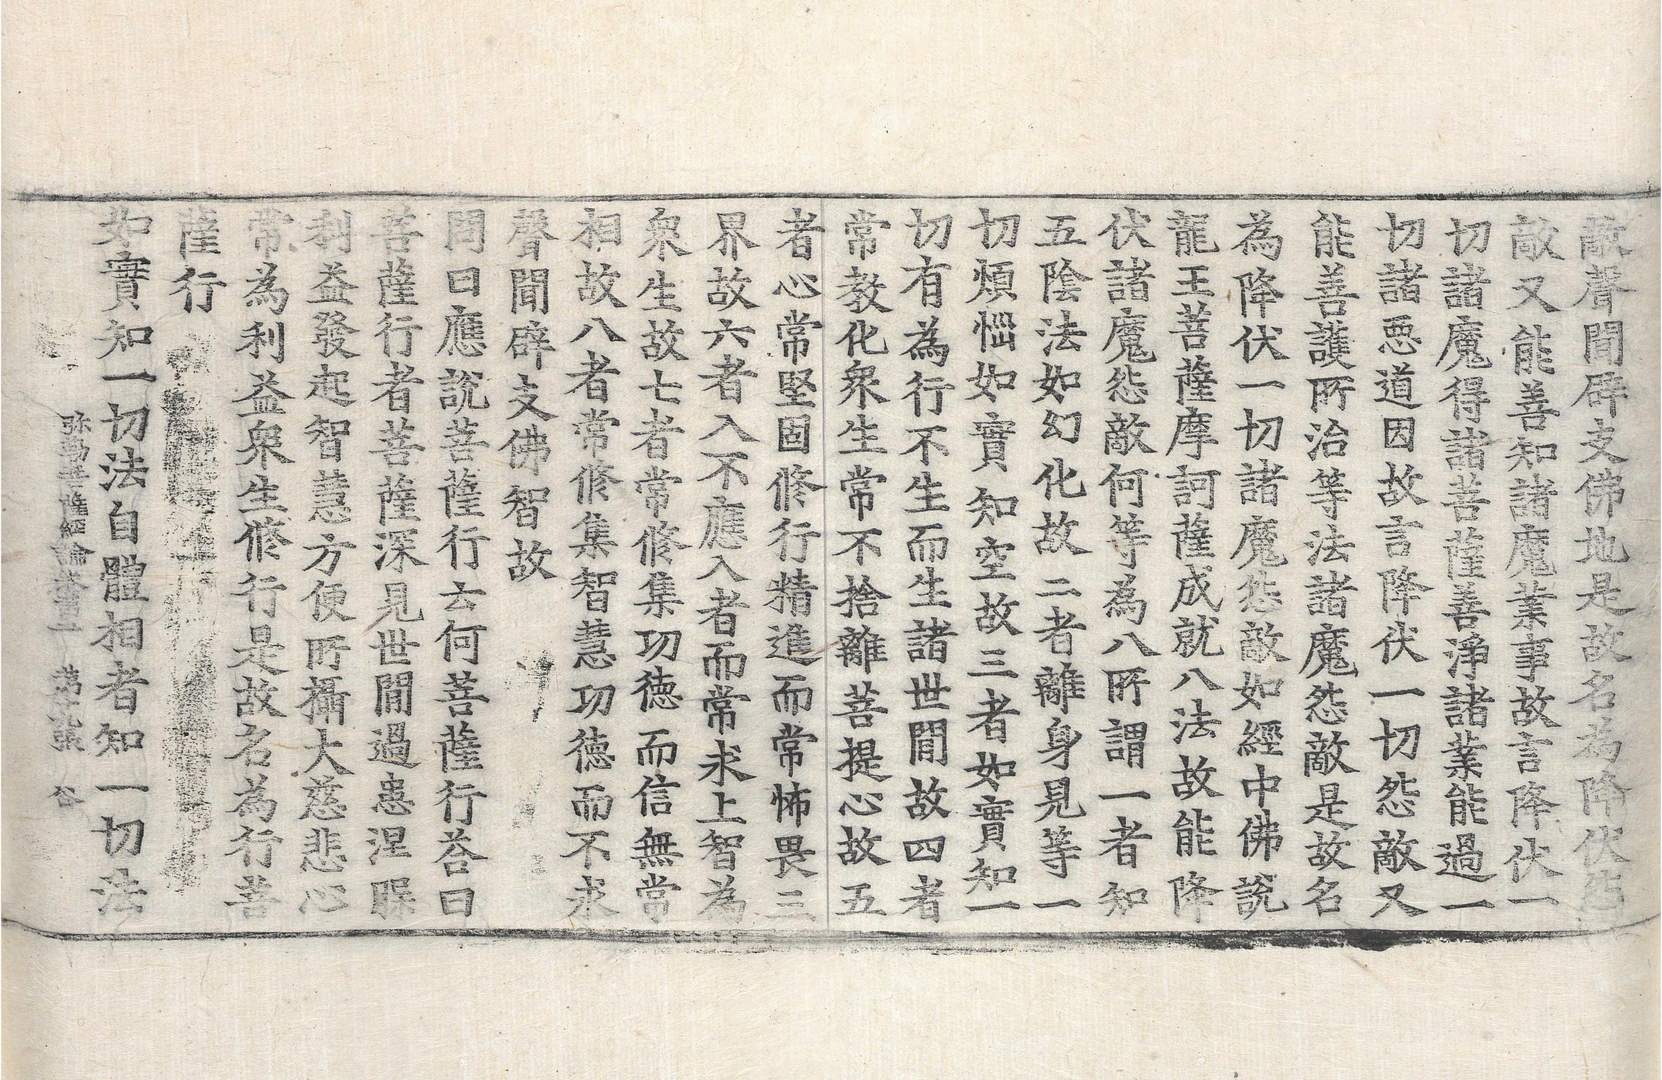 敵聲聞辟支佛地是故名為降伏怨
敵又能善知諸魔業事故言降伏一
切諸魔得諸菩薩善淨諸業能過一
切諸惡道因故言降伏一切怨敵又
能善護所治等法諸魔怨敵是故名
為降伏一切諸魔怨敵如經中佛說
龍王菩薩摩訶薩成就八法故能降
伏諸魔怨敵何等為八所謂一者知
五陰法如幻化故二者離身見等一
切煩惱如實知空故三者如實知一
切有為行不生而生諸世間故四者
常教化衆生常不捨離菩提心故五
者心常堅固修行精進而常怖畏三
界故六者入不應入者而常求上智為
衆生故七者常修集功德而信無常
相故八者常修集智慧功德而不求
聲聞辟支佛智故
問曰應說菩薩行云何菩薩行荅曰
菩薩行者菩薩深見世間過患涅槃
利益發起智慧方便所攝大慈悲心
常為利益衆生修行是故名為行菩
薩行
如實知一切法自體相者知一切法
弥勒菩薩經論卷第一 第